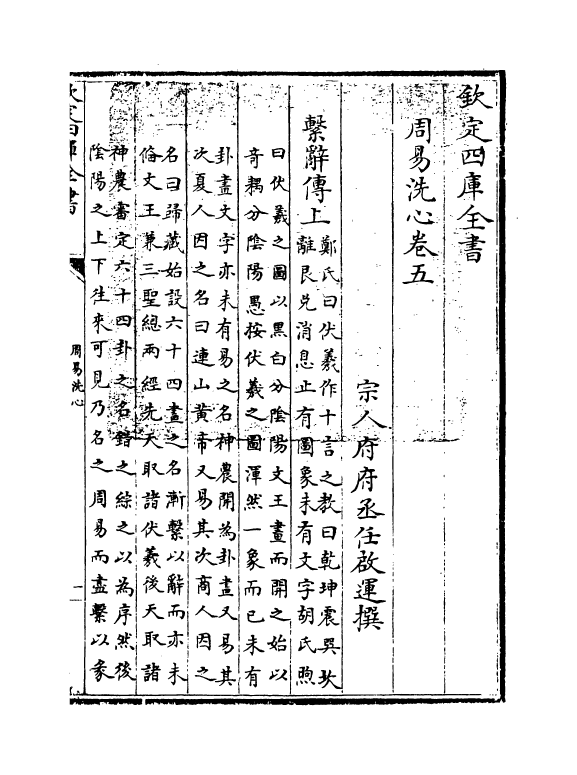 欽定四庫全書
周易洗心卷五
宗人府府丞任啟運撰
繫辭傳上
鄭氏曰伏羲作十言之教曰乾坤震巽坎
離艮兌消息止有圖象未有文字胡氏煦
曰伏羲之圖以黑白分陰陽文王畫而開之始以
奇耦分陰陽愚按伏羲之圖渾然一象而已未有
卦畫文字亦未有易之名神農開為卦畫又易其
次夏人因之名曰連山黄帝又易其次商人因之
名曰歸藏始設六十四畫之名漸繫以辭而亦未
偹文王兼三聖總兩經先天取諸伏羲後天取諸
神農審定六十四卦之名錯之綜之以為序然後
陰陽之上下往來可見乃名之周易而盡繫以彖
欽定四庫全書
周易洗心
一